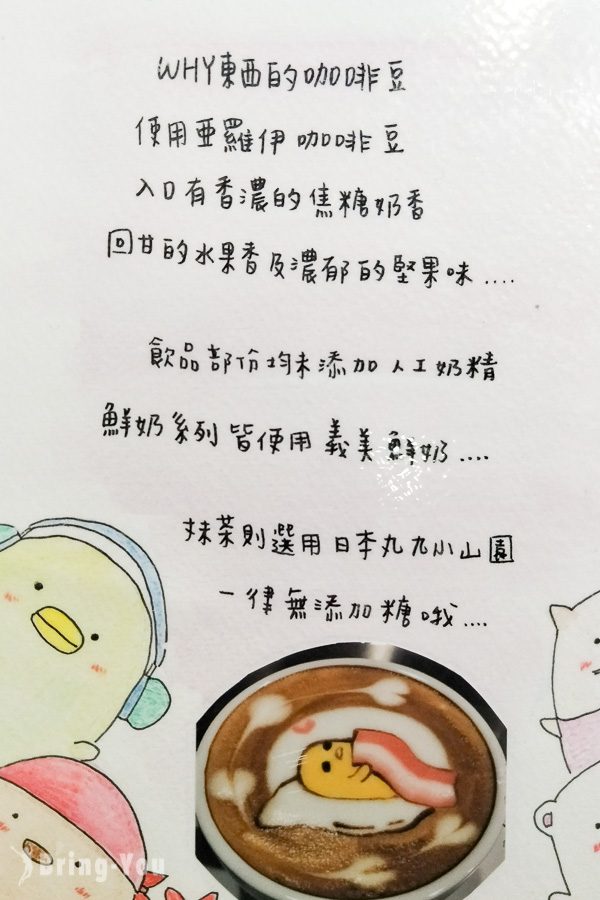 WHY東西的咖啡豆
使用亞羅伊咖啡豆
入口有香濃的焦糖奶香
回甘的水果香及濃郁的堅果味....
飲品部份均未添加人工奶精
鮮奶系列皆使用義美鮮奶....
抹茶則選用日本丸九小山園
一律無添加糖哦....
Bring-You